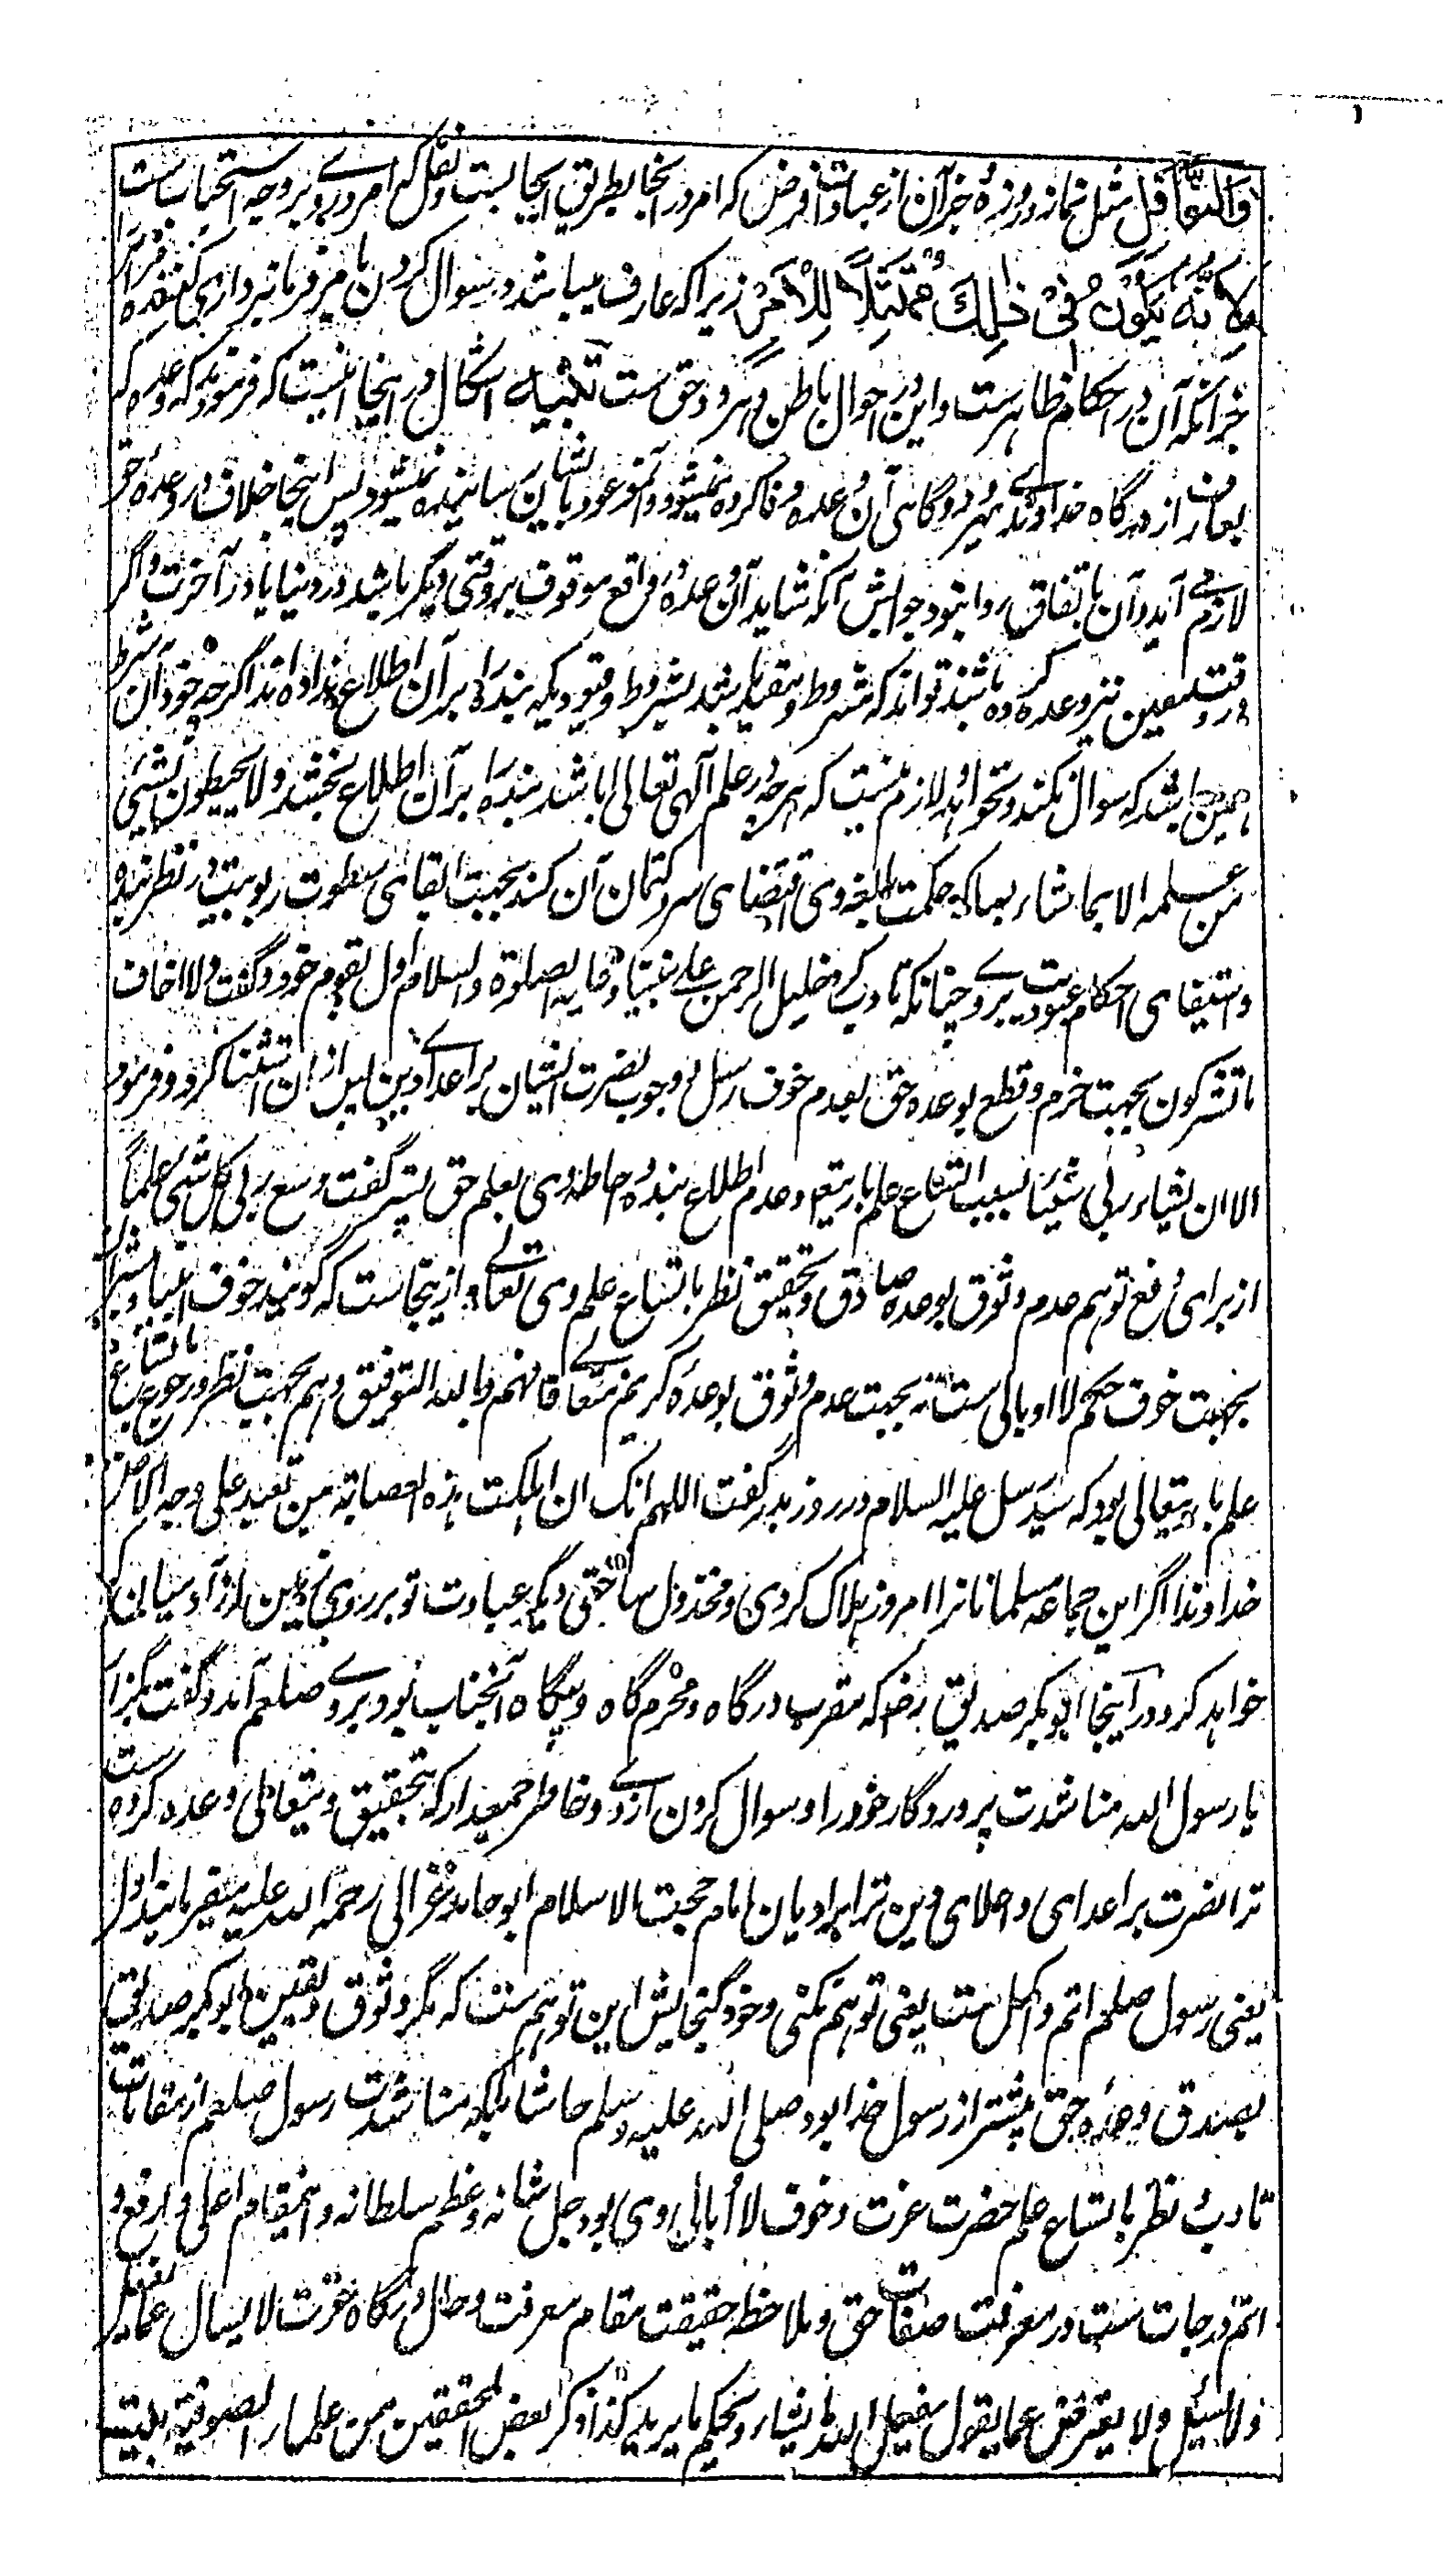 وَالنَّوَافِلَ مثل نماز و روزه جز آن از عبادات و فرض که امر در اینجا بطریق ایجابست و نفل که امر در وی بر وجه استحبابست
لِاَنَّهٗ يَكُوْنُ فِيْ ذٰلِكَ مُمْتَثِلًا لِلْاَمْرِ زیرا که عارف میباشد در سوال کردن بامر و فرمانبرداری کننده مر آنرا
جز آنکه آن در احکام ظاهرست و این در احوال باطن و هر دو حق ست تنبیه اشکال در اینجا اینست که فرمودند که وعده که
بعارف از درگاه خداوندی بود گاهی آن وعده وفا کرده نمیشود و موعود بایشان رسانیده نمیشود پس اینجا خلاف در وعده حق
لازم می آید و آن باتفاق روا نبود جوابش آنکه شاید آن وعده در واقع موقوف بر وقتی دیگر باشد در دنیا یا در آخرت و اگر
در وقت معین نیز وعده کرده باشند تواند که مشروط و مقید باشد بشروط و قیود که بنده را بر آن اطلاع نداده اند اگرچه خود آن شرط
همین باشد که سوال نکند و نخواهد و لازم نیست که هرچه در علم آلهی تعالی باشد بنده را بر آن اطلاع بخشند ولا يحيطون بشئ
من علمه الا بما شاء بسا که حکمت بالغه وی اقتضای سر و کتمان آن کند بجهت ابقای سطوت ربوبیت در نظر بنده
و استیفای احکام عبودیت بروی چنانکه تادب کرد خلیل الرحمن علی نبینا و علیه الصلوة والسلام اول بقوم خود گفت ولا اخاف
ما تشركون بجهت جزم و قطع بوعده حق بعدم خوف رسل و وجوب نصرت ایشان بر اعدای دین پس از آن استثنا کرد و فرمود
الا ان يشاء ربي شيئا بسبب اتساع علم باریتعالی و عدم اطلاع بنده و احاطه وی بعلم حق پستر گفت وسع ربي كل شئ علما
از برای رفع توهم عدم وثوق بوعده صادق و تحقیق نظر باتساع علم وی تعالی و ازینجاست که گویند خوف انبیا و مبشران
بجهت خوف حکم لا ابالی ست نه بجهت عدم وثوق بوعده کریم تعالی فافهم و بالله التوفیق و هم بجهت نظر و رجوع باتساع
علم باریتعالی بود که سید رسل علیه السلام در روز بدر گفت اللهم انك ان اهلكت هذه العصابة من تعبد على وجه الارض
خداوندا اگر این جماعه مسلمانان را امروز هلاک کردی و مخذول ساختی دیگر عبادت تو بر روی زمین از آدمیان که
خواهد کرد و در آنجا ابوبکر صدیق رضه که مقرب درگاه و محرم گاه و بیگاه آنجناب بود بروی صلعم آمد و گفت بگذار
یا رسول الله مناشدت پروردگار خود را و سوال کردن از وی و خاطر جمعدار که بتحقیق ویتعالی وعده کرده است
ترا نصرت بر اعدای و اعلای دین ترا بر ادیان امام حجت الاسلام ابوحامد غزالی رحمه الله علیه میفرمایند اول
یعنی رسول صلعم اتم و اکمل ست یعنی توهم نکنی و خود گنجایش این توهم نیست که مگر وثوق و یقین ابوبکر صدیق
بصدق وعده حق بیشتر از رسول خدا بود صلی الله علیه وسلم حاشا بلکه مناشدت رسول صلعم از مقامات
تادب و نظر باتساع علم حضرت عزت و خوف لا ابالی وی بود جل شانه و عظم سلطانه و اینمقام اعلی و ارفع و
اتم درجات ست در معرفت صفات حق و ملاحظه حقیقت مقام معرفت و حال درگاه عزت لا يسأل عما يفعل
ولا يسئل ولا يعترض عما يقول يفعل الله ما يشاء ويحكم ما يريد كذا ذكر بعض المحققين من علماء الصوفية بيت